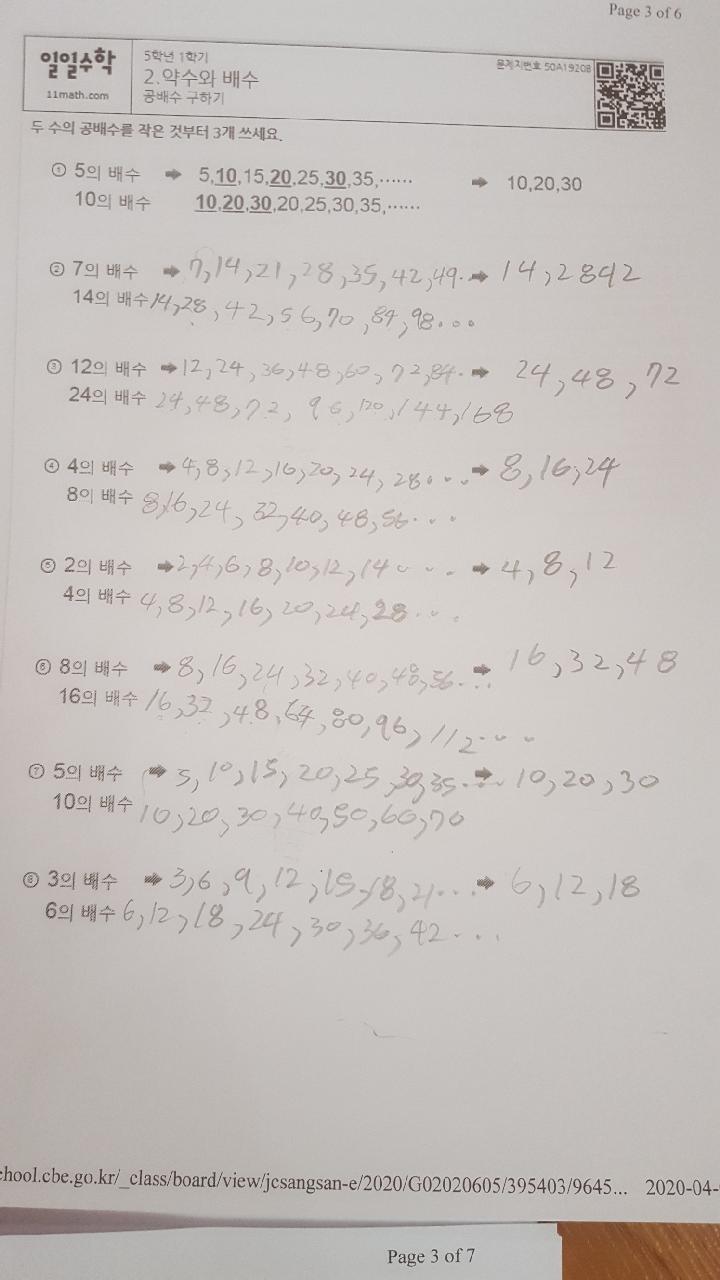 Page 3 of 6
일일수학
11math.com
5학년 1학기
2.약수와 배수
공배수 구하기
문제지번호 50A1920B
두 수의 공배수를 작은 것부터 3개 쓰세요.
① 5의 배수 ➡ 5,10,15,20,25,30,35,…… ➡ 10,20,30
10의 배수 10,20,30,20,25,30,35,……
② 7의 배수 ➡ 7,14,21,28,35,42,49.. ➡ 14,2842
14의 배수 14,28,42,56,70,84,98...
③ 12의 배수 ➡ 12,24,36,48,60,72,84. ➡ 24,48,72
24의 배수 24,48,72,96,120,144,168
④ 4의 배수 ➡ 4,8,12,16,20,24,28... ➡ 8,16,24
8의 배수 8,16,24,32,40,48,56...
⑤ 2의 배수 ➡ 2,4,6,8,10,12,14... ➡ 4,8,12
4의 배수 4,8,12,16,20,24,28...
⑥ 8의 배수 ➡ 8,16,24,32,40,48,56... ➡ 16,32,48
16의 배수 16,32,48,64,80,96,112...
⑦ 5의 배수 ➡ 5,10,15,20,25,30,35... ➡ 10,20,30
10의 배수 10,20,30,40,50,60,70
⑧ 3의 배수 ➡ 3,6,9,12,15,18,21... ➡ 6,12,18
6의 배수 6,12,18,24,30,36,42...
chool.cbe.go.kr/_class/board/view/jcsangsan-e/2020/G02020605/395403/9645... 2020-04-
Page 3 of 7